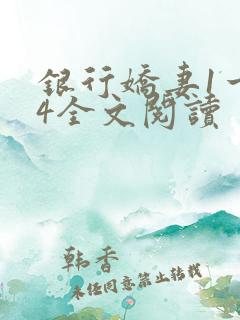 銀行嬌妻1一
4全文閱讀
韩香
未经同意禁止转载